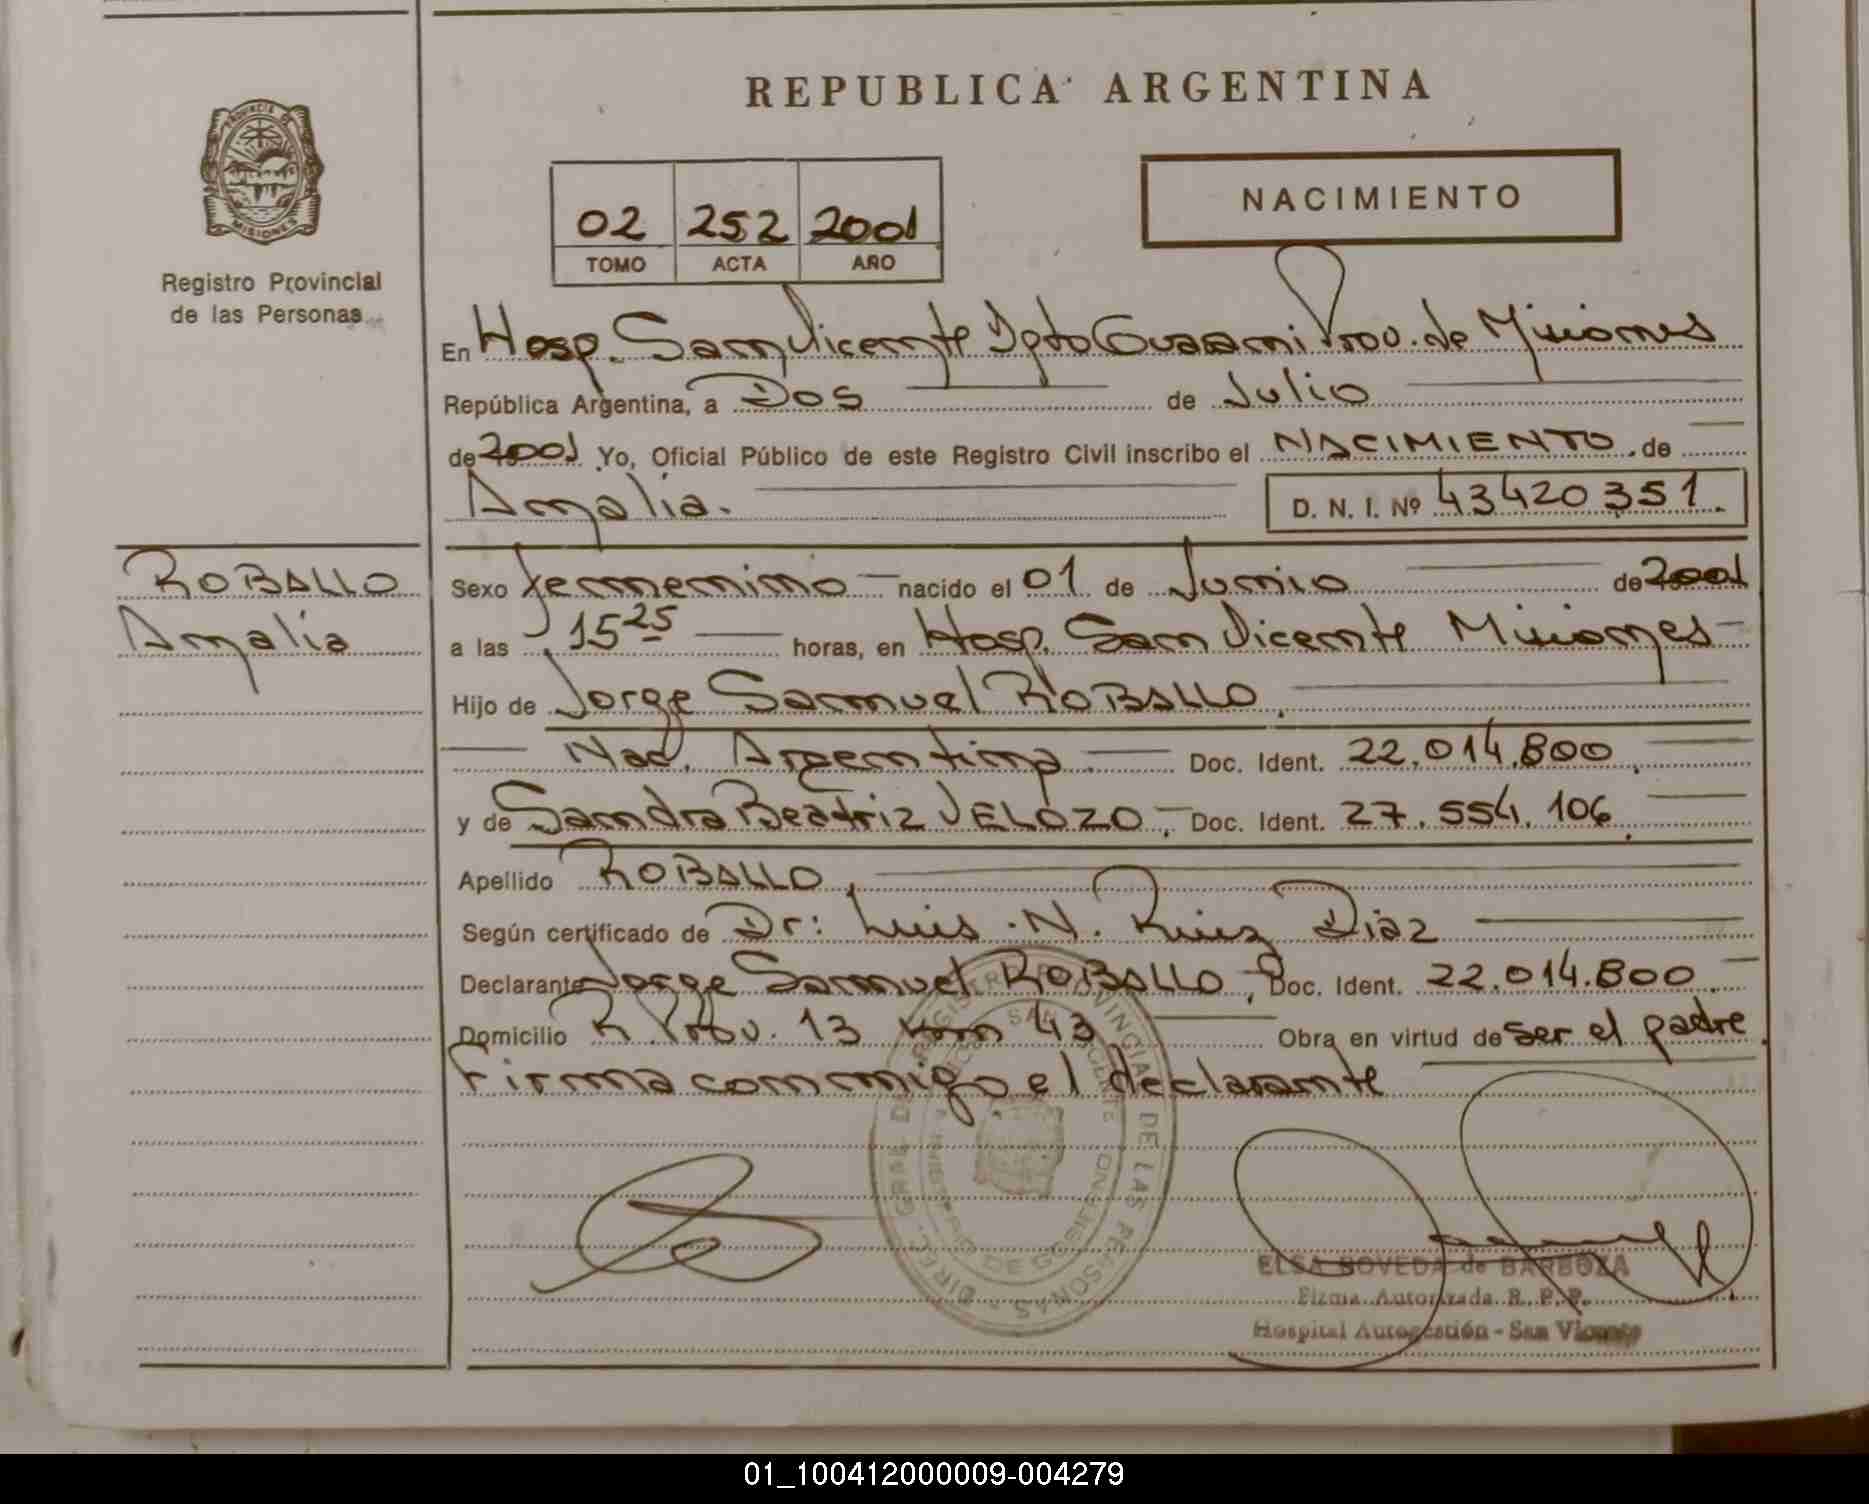 REPUBLICA ARGENTINA
PROVINCIA DE
MISIONES
Registro Provincial
de las Personas
02 252 2001
TOMO ACTA AÑO
NACIMIENTO
En Hosp. San Vicente Dpto Guarani Prov. de Misiones
República Argentina, a Dos de Julio
de 2001 Yo, Oficial Público de este Registro Civil inscribo el NACIMIENTO de
Amalia.
D. N. I. Nº 43420351.
ROBALLO
Amalia
Sexo femenino nacido el 01 de Junio de 2001
a las 15 25 horas, en Hosp. San Vicente Misiones
Hijo de Jorge Samuel ROBALLO.
Nac. Argentina Doc. Ident. 22.014.800.
y de Sandra Beatriz VELOZO, Doc. Ident. 27.554.106.
Apellido ROBALLO,
Según certificado de Dr: Luis N. Ruiz Diaz
Declarante Jorge Samuel ROBALLO, Doc. Ident. 22.014.800.
Domicilio R. Prov. 13 km 43 Obra en virtud de ser el padre.
Firma conmigo el declarante
DIREC. GRAL. DEL REGISTRO PROVINCIAL DE LAS PERSONAS
SAN VICENTE
DE GOBIERNO
ELSA BOVEDA de BARBOZA
Firma Autorizada R. P. P.
Hospital Autogestión - San Vicente
01_100412000009-004279